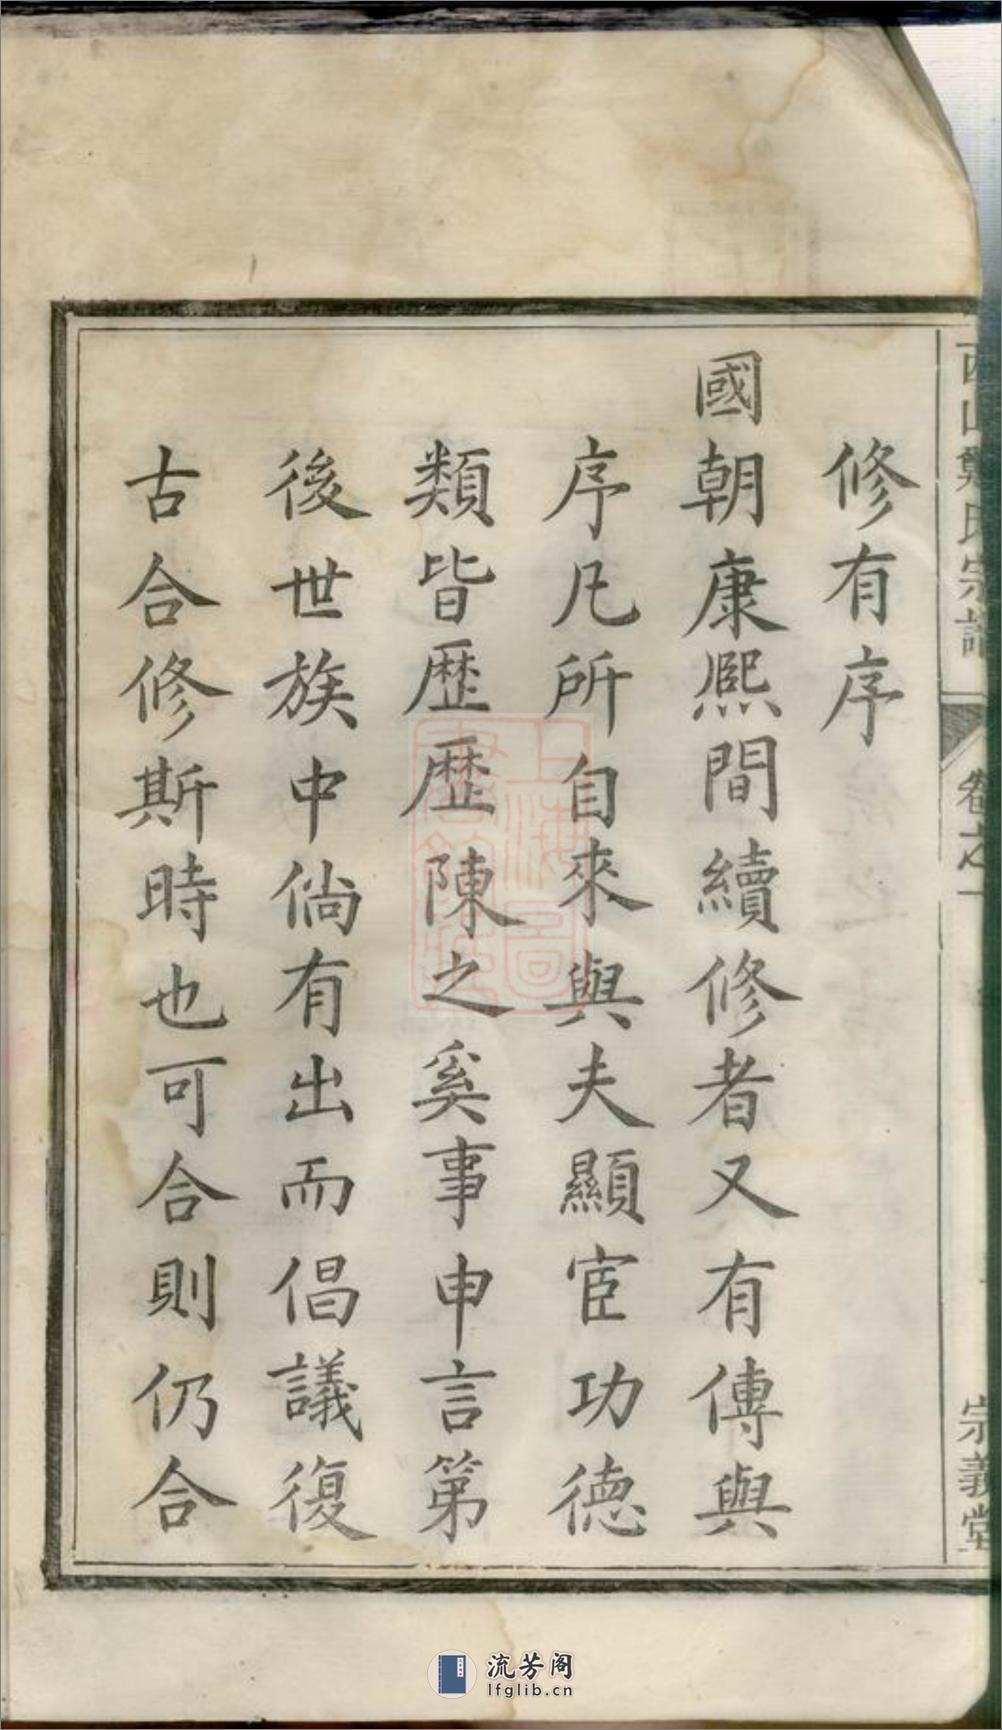 修有序
國朝康熙間續修者又有傳與
序凡所自來與夫顯宦功德
類皆歷歷陳之奚事申言第
後世族中倘有出而倡議復
古合修斯時也可合則仍合
西山鄭氏宗譜
卷之一
宗義堂
上海圖書館藏
流芳阁
lfglib.cn